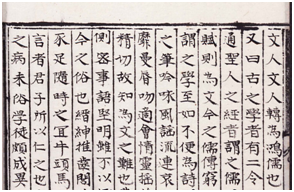 文人文人轉為鴻儒也
又曰古之學者有二今
通聖人之經者謂之儒
賦則為文今之儒博窮
謂之學至如不便為詩
之筆吟咏風謡流連哀
靡曼脣吻適會情靈揺
精切故知為文之難也曹
側密事語堅明雖不以
今之俗也縉紳稚齒閭
豕足隨時之宜牛頭馬
言者君子所以行之也
之病末俗學徒頗或異